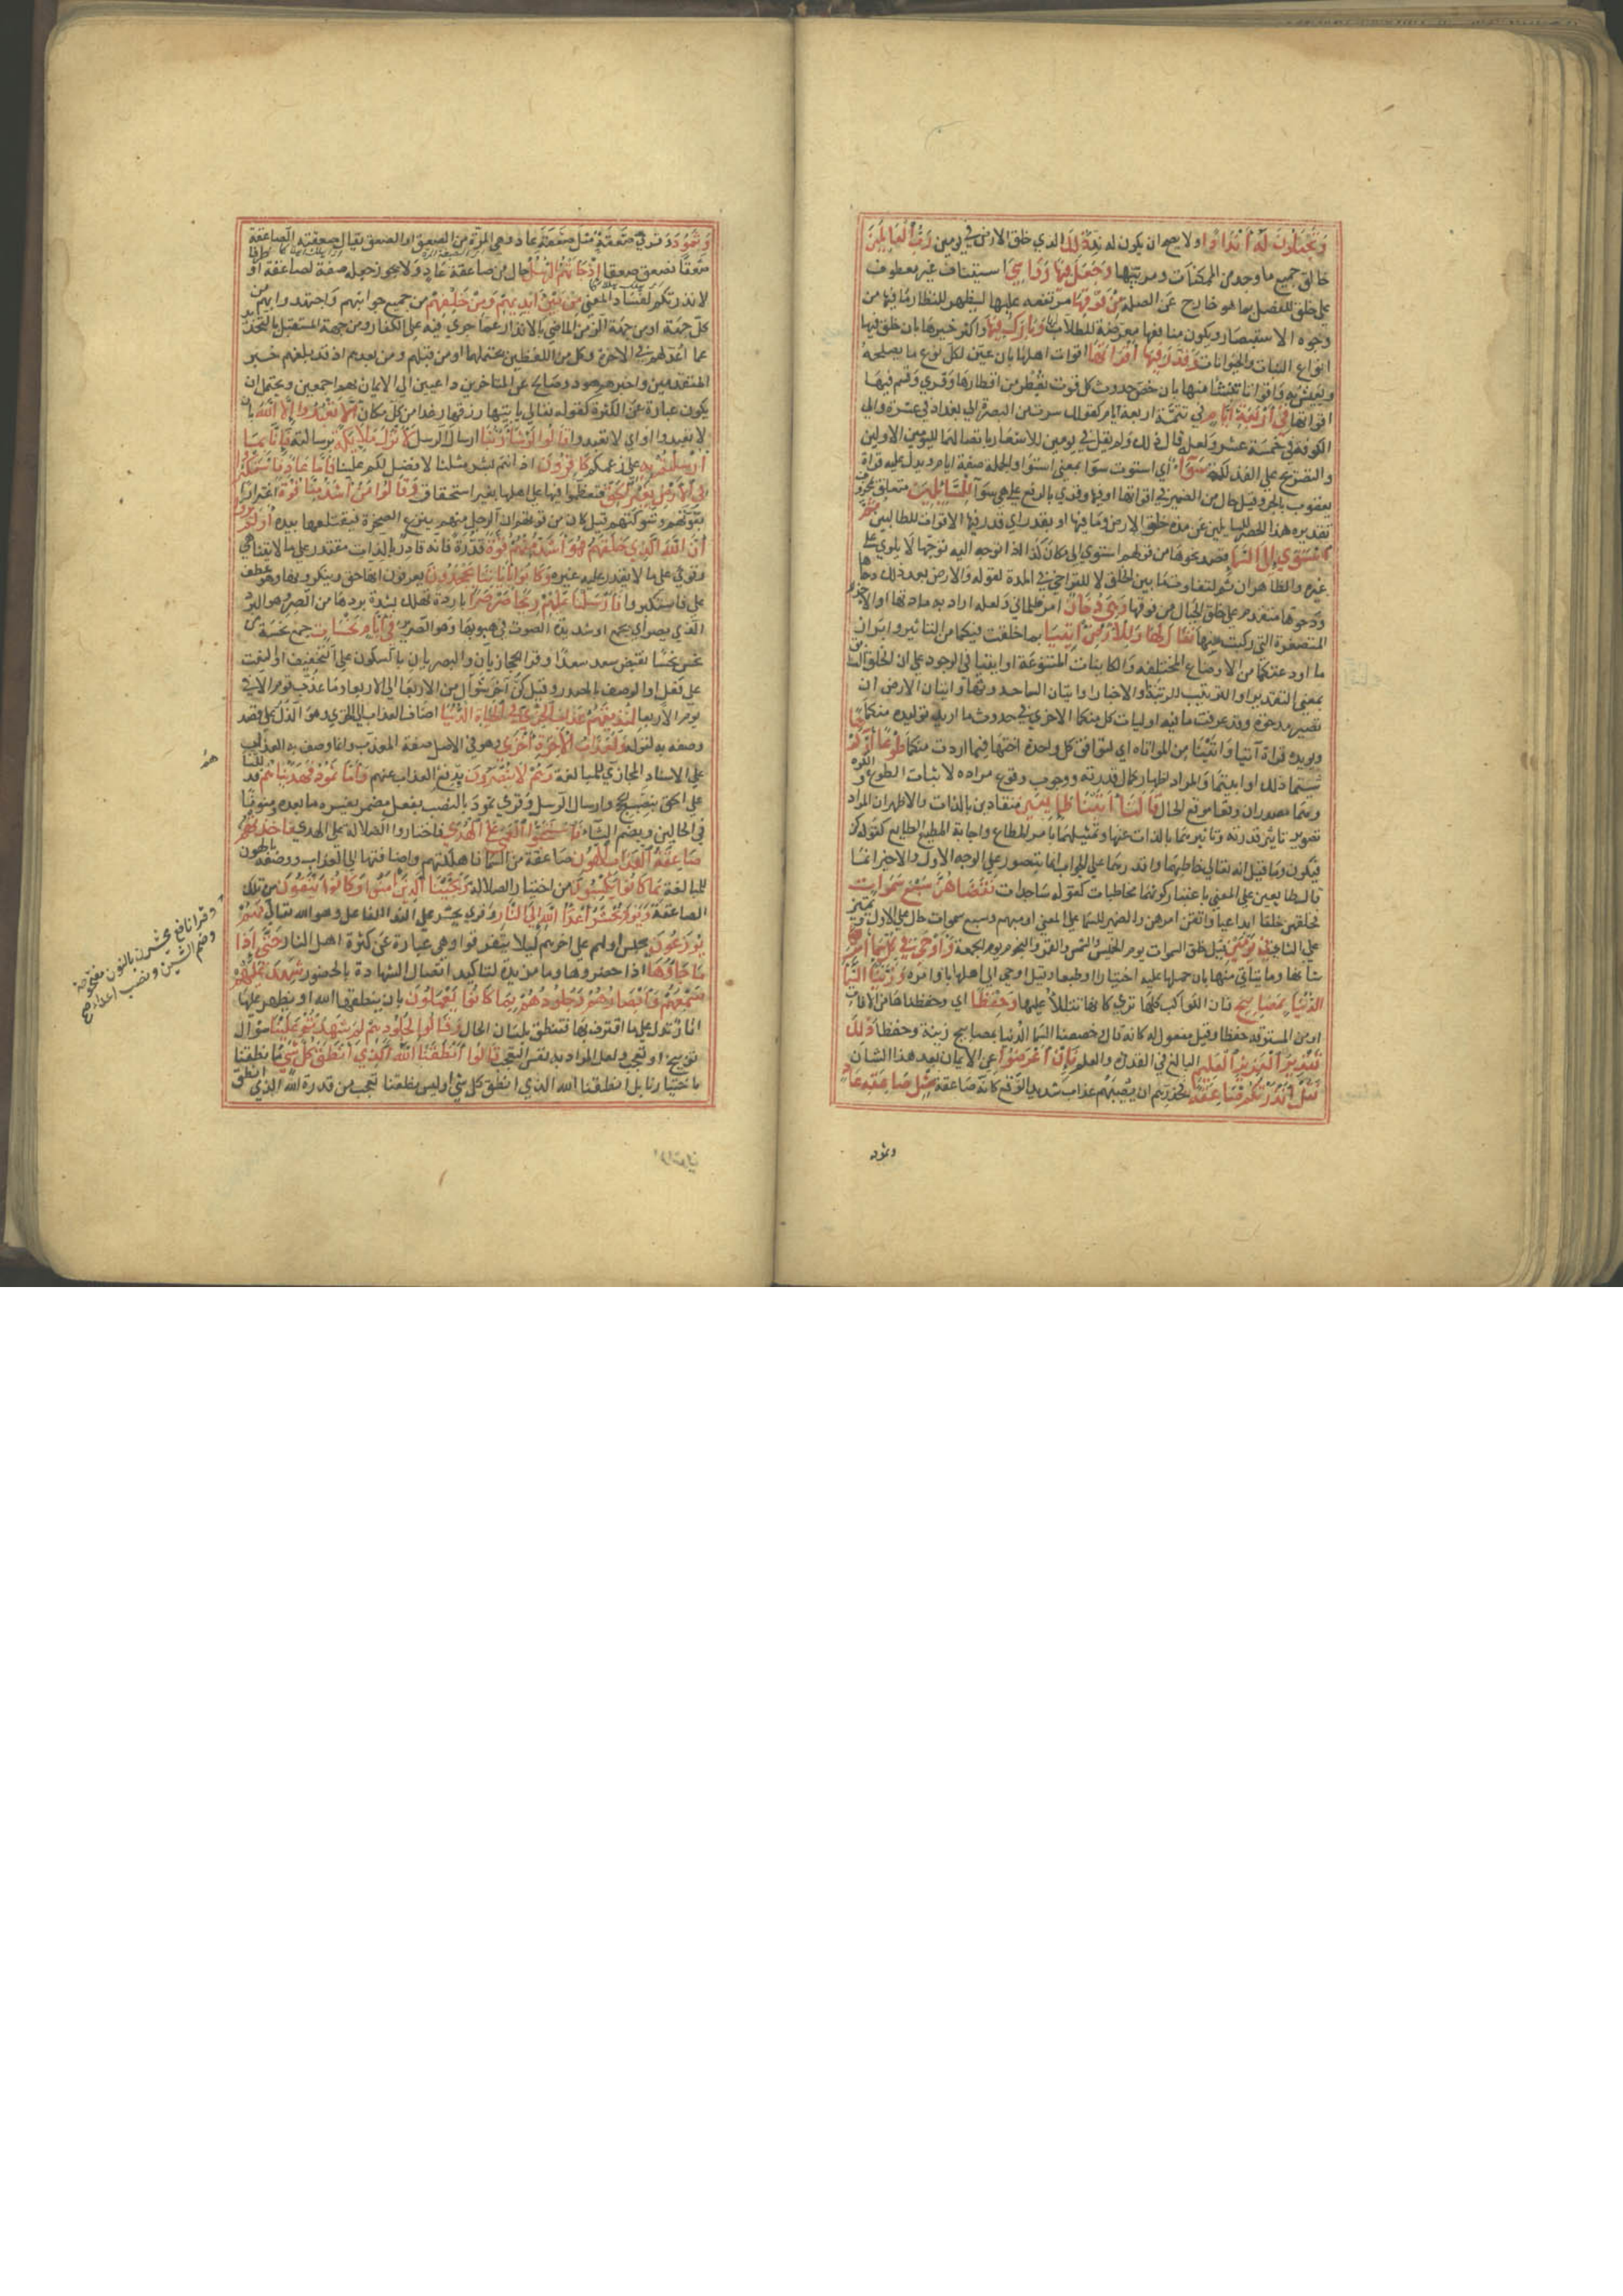 وَتَجْعَلُونَ لَهُ أَنْدَادًا ولا يصح ان يكون له ند ذلِكَ الذي خلق الارض في يومين رَبُّ الْعَالَمِينَ
خالق جميع ما وجد من الممكنات ومربيها وَجَعَلَ فِيهَا رَوَاسِيَ استيناف غير معطوف
علي خلق للفصل بما هو خارج عن الصلة مِنْ فَوْقِهَا مرتفعه عليها ليظهر للنظار ما فيها من
وجوه الاستبصار ويكون منافعها معرضة للطلاب وَبَارَكَ فِيهَا واكثر خيرها بان خلق فيها
انواع النبات والحيوانات وَقَدَّرَ فِيهَا أَقْوَاتَهَا اقوات اهلها بان عين لكل نوع ما يصلحه
ويعيش به واقواتا تنشأ منها بان خص حدوث كل قوت بقطر من اقطارها وقري وقسم فيها
اقواتها فِي أَرْبَعَةِ أَيَّامٍ في تتمة اربعة ايام كقولك سرت من البصرة الي بغداد في عشرة والي
الكوفة في خمسة عشر ولعله قال ذلك ولم يقل في يومين للاشعار باتصالهما لليومين الاولين
والتصريح علي الفذلكة سَوَاءً أي استوت سوا بمعني استوا والجملة صفة ايام ويدل عليه قراة
يعقوب بالجر وقيل حال من الضمير في اقواتها او فيها وقري بالرفع علي هي سوآ لِلسَّائِلِينَ متعلق بمحذوف
تقديره هذا الحصر للسايلين عن مدة خلق الارض وما فيها او بقدر اي قدر فيها الاقوات للطالبين ثم
اسْتَوَى إِلَى السَّمَاءِ قصد نحوها من قولهم استوي الي مكان كذا اذا توجه اليه توجها لا يلوي علي
غيره والظاهر ان ثم لتفاوت ما بين الخلقين لا للتراخي في المدة لقوله والارض بعد ذلك دحاها
ودحوها متقدم علي خلق الجبال من فوقها وَهِيَ دُخَانٌ امر ظلماني ولعله اراد به مادتها او الاجزا
المتصغرة التي ركبت منها فَقَالَ لَهَا وَلِلْأَرْضِ ائْتِيَا بما خلقت فيكما من التاثير وابرزا
ما اودعتكما من الاوضاع المختلفة والكاينات المتنوعة او ايتيا في الوجود علي ان الخلق السابق
بمعني التقدير او الترتيب للرتبة او الاخبار او اتيان السما حدوثها واتيان الارض ان
تصير مدحوة وقد عرفت ما فيه او ليات كل منكما الاخري في حدوث ما اريد توليده منكما
ويويده قراة آتيا واتينا من المواتاه اي لتوافق كل واحدة اختها فيما اردت منكما طَوْعًا أَوْ كَرْهًا
شيتما ذلك او ابيتما والمراد اظهار كمال قدرته ووجوب وقوع مراده لا اثبات الطوع والكره
وهما مصدران وقعا موقع الحال قَالَتَا أَتَيْنَا طَائِعِينَ منقادين بالذات والاظهر ان المراد
تصوير تاثير قدرته وتاثرهما بالذات عنها وتمثيلهما بامر المطاع واجابة المطيع الطايع كقوله كن
فيكون وما قيل انه تعالي خاطبهما واقدرهما علي الجواب انما يتصور علي الوجه الاول والاخير انما
قال طايعين علي المعني باعتبار كونهما مخاطبات كقوله ساجدات فَقَضَاهُنَّ سَبْعَ سَمَوَاتٍ
فخلقهن خلقا ابداعيا واتقن امرهن والضمير للسما علي المعني او مبهم وسبع سموات حال علي الاول وتمييز
علي الثاني فِي يَوْمَيْنِ قيل خلق السموات يوم الخميس والشمس والقمر والنجوم يوم الجمعة وَأَوْحَى فِي كُلِّ سَمَاءٍ أَمْرَهَا
شانها وما يتاتي منها بان حملها عليه اختيارا او طبعا وقيل اوحي الي اهلها باوامره وَزَيَّنَّا السَّمَاءَ
الدُّنْيَا بِمَصَابِيحَ فان الكواكب كلها تري كانها تتلألأ عليها وَحِفْظًا اي وحفظناها من الافات
او من المسترقة حفظا وقيل مفعول له كانه قال وخصصنا السما الدنيا بمصابيح زينة وحفظا ذَلِكَ
تَقْدِيرُ الْعَزِيزِ الْعَلِيمِ البالغ في القدرة والعلم فَإِنْ أَعْرَضُوا عن الايمان بعد هذا الشان
فَقُلْ أَنْذَرْتُكُمْ صَاعِقَةً فحذرهم ان يصيبهم عذاب شديد الوقع كانه صاعقة مِثْلَ صَاعِقَةِ عَادٍ
وثمود
وَثَمُودَ وقري صعقة مثل صعقة عاد وهي المرة من الصعق او الصعق يقال صعقته الصاعقة
صعقا فصعق صعقا إِذْ جَاءَتْهُمُ الرُّسُلُ حال من صاعقة عاد ولا يجوز جعله صفة لصاعقة او
لانذرتكم لفساد المعني مِنْ بَيْنِ أَيْدِيهِمْ وَمِنْ خَلْفِهِمْ من جميع جوانبهم واجتهدوا بهم من
كل جهة او من جهة الزمن الماضي بالانذار عما جري فيه علي الكفار ومن جهة المستقبل بالتحذير
عما اعد لهم في الاخرة وكل من اللفظين يحتملهما او من قبلهم ومن بعدهم اذ قد بلغهم خبر
المتقدمين واخبرهم هود وصالح عن المتاخرين داعيين الي الايمان بهم اجمعين ويحتمل ان
يكون عبارة عن الكثرة كقوله تعالي ياتيها رزقها رغدا من كل مكان أَلَّا تَعْبُدُوا إِلَّا اللَّهَ بان
لا تعبدوا او اي لا تعبدوا قَالُوا لَوْ شَاءَ رَبُّنَا ارسال الرسل لَأَنْزَلَ مَلَائِكَةً برسالته فَإِنَّا بِمَا
أُرْسِلْتُمْ بِهِ علي زعمكم كَافِرُونَ اذ انتم بشر مثلنا لا فضل لكم علينا فَأَمَّا عَادٌ فَاسْتَكْبَرُوا
فِي الْأَرْضِ بِغَيْرِ الْحَقِّ فتعظموا فيها علي اهلها بغير استحقاق وَقَالُوا مَنْ أَشَدُّ مِنَّا قُوَّةً اغترارا
بقوتهم وشوكتهم قيل كان من قوتهم ان الرجل منهم ينزع الصخرة فيقتلعها بيده أَوَلَمْ يَرَوْا
أَنَّ اللَّهَ الَّذِي خَلَقَهُمْ هُوَ أَشَدُّ مِنْهُمْ قُوَّةً قدرة فانه قادر بالذات مقتدر علي ما لا يتناهي
وقوي علي ما لا يقدر عليه غيره وَكَانُوا بِآيَاتِنَا يَجْحَدُونَ يعرفون انها حق وينكرونها وهو عطف
علي فاستكبروا فَأَرْسَلْنَا عَلَيْهِمْ رِيحًا صَرْصَرًا باردة تهلك بشدة بردها من الصر وهو البرد
الذي يصر اي يجمع او شديدة الصوت في هبوبها وهو الصرير فِي أَيَّامٍ نَحِسَاتٍ جمع نحسة من
نحس نحسا نقيض سعد سعدا وقرا الحجازيان والبصريان بالسكون علي التخفيف او النعت
علي فعل او الوصف بالمصدر وقيل كن آخر شوال من الاربعا الي الاربعا وما عذب قوم الا في
يوم الاربعا لِنُذِيقَهُمْ عَذَابَ الْخِزْيِ فِي الْحَيَاةِ الدُّنْيَا اضاف العذاب الي الخزي وهو الذل علي قصد
وصفه به لقوله وَلَعَذَابُ الْآخِرَةِ أَخْزَى وهو في الاصل صفة المعذب وانما وصف به العذاب
علي الاسناد المجازي للمبالغة وَهُمْ لَا يُنْصَرُونَ بدفع العذاب عنهم وَأَمَّا ثَمُودُ فَهَدَيْنَاهُمْ فدللناهم
علي الحق بنصب الحجج وارسال الرسل وقري ثمود بالنصب بفعل مضمر يفسره ما بعده ومنونا
في الحالين وبضم الثاء فَاسْتَحَبُّوا الْعَمَى عَلَى الْهُدَى فاختاروا الضلالة علي الهدي فَأَخَذَتْهُمْ
صَاعِقَةُ الْعَذَابِ الْهُونِ صاعقة من السما فاهلكتهم واضافتها الي العذاب ووصفه بالهون
للمبالغة بِمَا كَانُوا يَكْسِبُونَ من اختيار الضلالة وَنَجَّيْنَا الَّذِينَ آمَنُوا وَكَانُوا يَتَّقُونَ من تلك
الصاعقة وَيَوْمَ يُحْشَرُ أَعْدَاءُ اللَّهِ إِلَى النَّارِ وقري يحشر علي البنا للفاعل وهو الله تعالي فَهُمْ
يُوزَعُونَ يحبس اولهم علي اخرهم ليلا يتفرقوا وهي عبارة عن كثرة اهل النار حَتَّى إِذَا
مَا جَاءُوهَا اذا حضروها وما مزيدة لتاكيد اتصال الشهادة بالحضور شَهِدَ عَلَيْهِمْ
سَمْعُهُمْ وَأَبْصَارُهُمْ وَجُلُودُهُمْ بِمَا كَانُوا يَعْمَلُونَ بان ينطقها الله او يظهر عليها
اثارا تدل علي ما اقترف بها فتنطق بلسان الحال وَقَالُوا لِجُلُودِهِمْ لِمَ شَهِدْتُمْ عَلَيْنَا سوال
توبيخ او تعجب ولعل المراد به نفس التعجب قَالُوا أَنْطَقَنَا اللَّهُ الَّذِي أَنْطَقَ كُلَّ شَيْءٍ ما نطقنا
باختيارنا بل انطقنا الله الذي انطق كل شي او ليس نطقنا بعجب من قدرة الله الذي انطق
وقرا نافع نحشر بالنون مفتوحة
وضم الشين ونصب اعدا صح